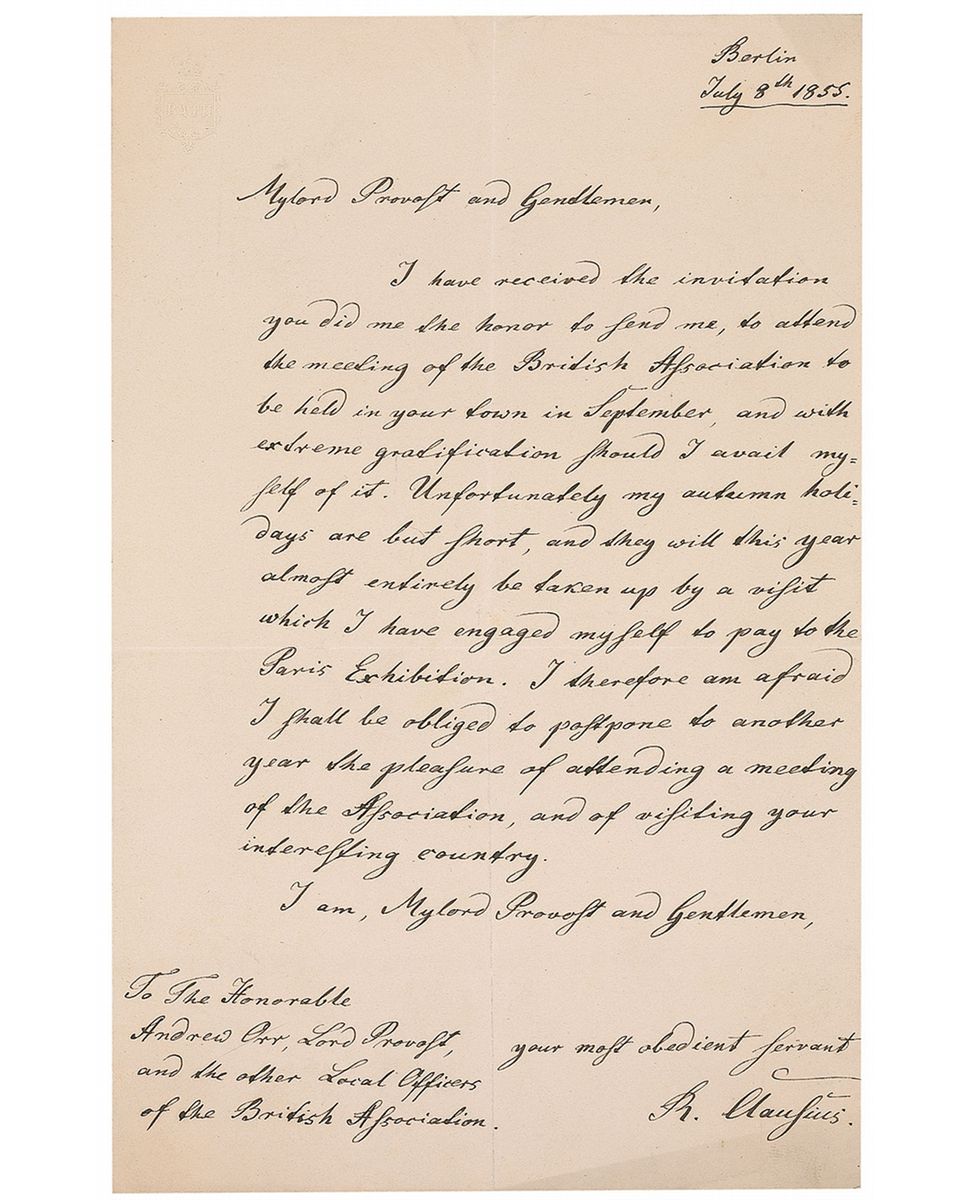 Berlin
July 8th 1855.
Mylord Provost and Gentlemen,
I have received the invitation
you did me the honor to send me, to attend
the meeting of the British Association to
be held in your town in September, and with
extreme gratification should I avail my=
self of it. Unfortunately my autumn holi=
days are but short, and they will this year
almost entirely be taken up by a visit
which I have engaged myself to pay to the
Paris Exhibition. I therefore am afraid
I shall be obliged to postpone to another
year the pleasure of attending a meeting
of the Association, and of visiting your
interesting country.
I am, Mylord Provost and Gentlemen,
your most obedient servant
R. Clausius.
To The Honorable
Andrew Orr, Lord Provost,
and the other Local Officers
of the British Association.